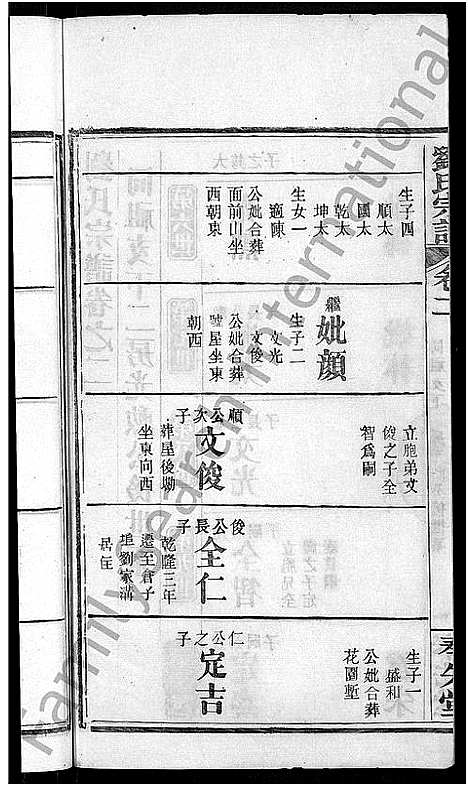 劉氏宗譜
卷二
生子四
順太
國太
乾太
坤太
生女一
適陳
公妣合葬
面前山坐
西朝東
繼妣顏
生子二
文光
文俊
公妣合葬
號屋坐東
朝西
立胞弟文
俊之子全
智為嗣
順公次子
文俊
葬屋後坳
坐東向西
俊公長子
全仁
乾隆三年
遷至倉子
埠劉家溝
居住
生子一
盛和
公妣合葬
花園塹
仁公之子
定吉
familysearch international